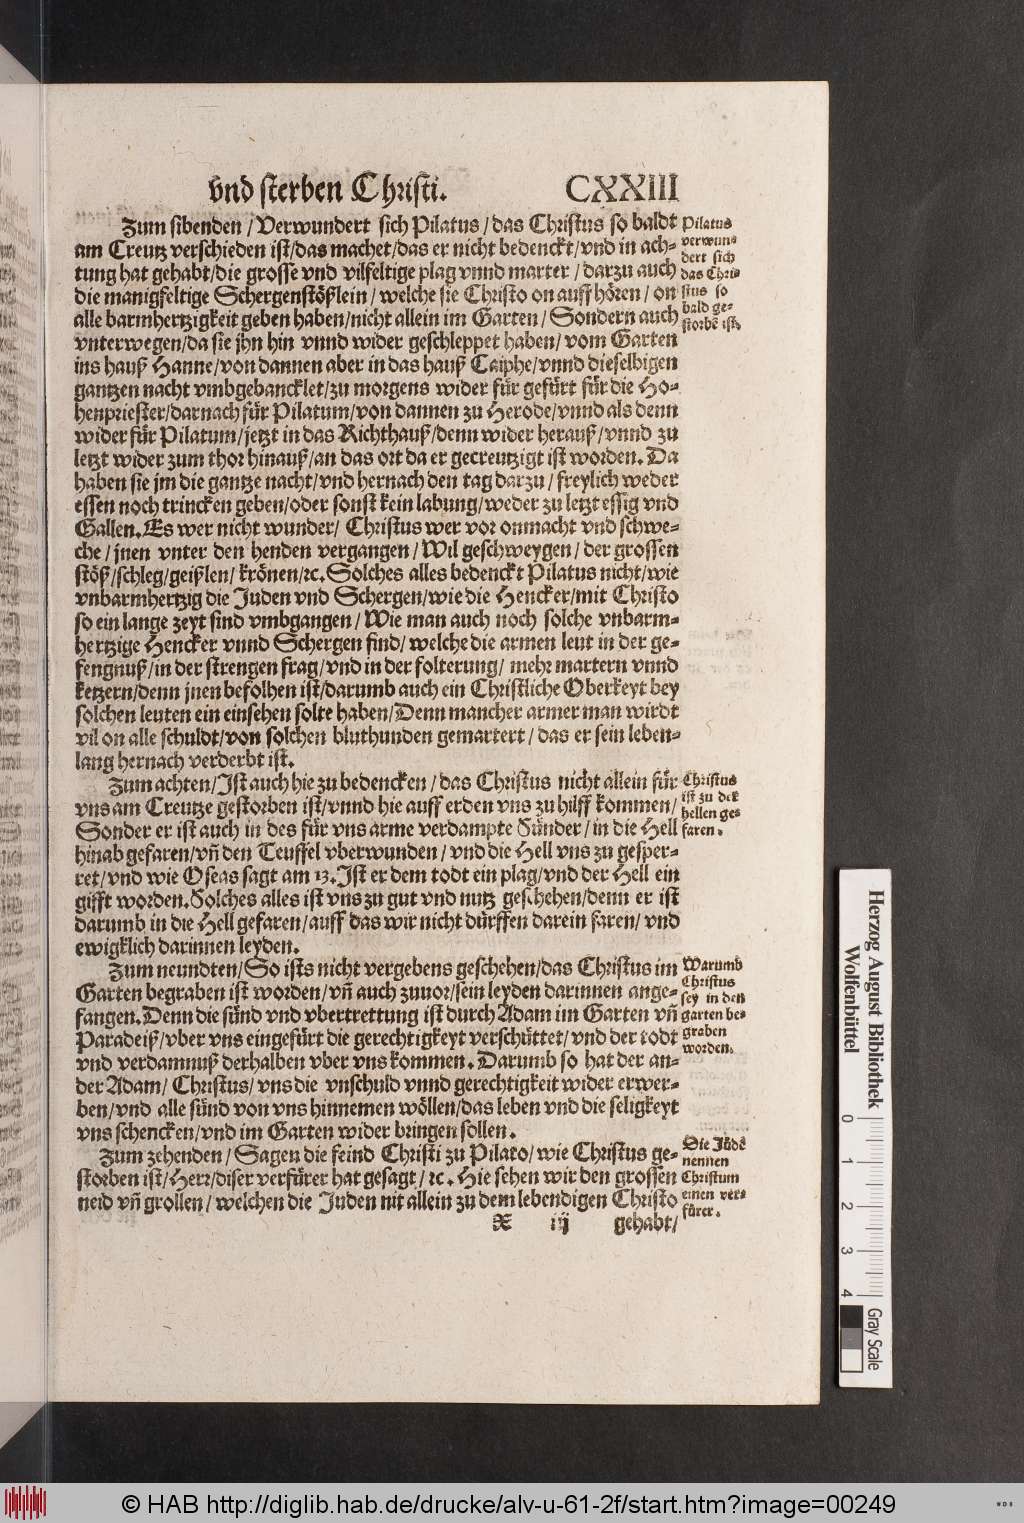 vnd sterben Christi. CXXIII
Zum sibenden / Verwundert sich Pilatus / das Christus so baldt
am Creutz verschieden ist/das machet/das er nicht bedenckt/vnd in ach-
tung hat gehabt/die grosse vnd vilfeltige plag vnnd marter / darzu auch
die manigfeltige Schergenstößlein / welche sie Christo on auff hören / on
alle barmhertzigkeit geben haben/nicht allein im Garten / Sondern auch
vnterwegen/da sie jhn hin vnnd wider geschleppet haben/ vom Garten
ins hauß Hanne/von dannen aber in das hauß Caiphe/vnnd dieselbigen
gantzen nacht vmbgebancklet/zu morgens wider für gefürt für die Ho-
henpriester/darnach für Pilatum/von dannen zu Herode/vnnd als denn
wider für Pilatum/jetzt in das Richthauß/denn wider herauß/vnnd zu
letzt wider zum thor hinauß/an das ort da er gecreutzigt ist worden. Da
haben sie jm die gantze nacht/vnd hernach den tag darzu / freylich weder
essen noch trincken geben/oder sonst kein labung/weder zu letzt essig vnd
Gallen. Es wer nicht wunder/ Christus wer vor onmacht vnd schwe-
che / jnen vnter den henden vergangen / Wil geschweygen / der grossen
stöß/schleg/geißlen/ krönen/ꝛc. Solches alles bedenckt Pilatus nicht/wie
vnbarmhertzig die Juden vnd Schergen/wie die Hencker/mit Christo
so ein lange zeyt sind vmbgangen / Wie man auch noch solche vnbarm-
hertzige Hencker vnnd Schergen find/ welche die armen leut in der ge-
fengnuß/in der strengen frag/vnd in der folterung/ mehr martern vnnd
ketzern/denn jnen befolhen ist/darumb auch ein Christliche Oberkeyt bey
solchen leuten ein einsehen solte haben/Denn mancher armer man wirdt
vil on alle schuldt/von solchen bluthunden gemartert / das er sein leben-
lang hernach verderbt ist.
Zum achten/Ist auch hie zu bedencken / das Christus nicht allein für
vns am Creutze gestorben ist/vnnd hie auff erden vns zu hilff kommen/
Sonder er ist auch in des für vns arme verdampte Sünder / in die Hell
hinab gefaren/vñ den Teuffel vberwunden / vnd die Hell vns zu gesper-
ret/vnd wie Oseas sagt am 13. Ist er dem todt ein plag/vnd der Hell ein
gifft worden. Solches alles ist vns zu gut vnd nutz geschehen/denn er ist
darumb in die Hell gefaren/auff das wir nicht dürffen darein faren/ vnd
ewigklich darinnen leyden.
Zum neundten/So ists nicht vergebens geschehen/das Christus im
Garten begraben ist worden/vñ auch zuuor/sein leyden darinnen ange-
fangen. Denn die sünd vnd vbertrettung ist durch Adam im Garten vñ
Paradeiß/vber vns eingefürt die gerechtigkeyt verschüttet/vnd der todt
vnd verdamnuß derhalben vber vns kommen. Darumb so hat der an-
der Adam/ Christus/vns die vnschuld vnnd gerechtigkeit wider erwer-
ben/vnd alle sünd von vns hinnemen wöllen/das leben vnd die seligkeyt
vns schencken/vnd im Garten wider bringen sollen.
Zum zehenden / Sagen die feind Christi zu Pilato/wie Christus ge-
storben ist/Herr/diser verfürer hat gesagt / ꝛc. Hie sehen wir den grossen
neid vñ grollen / welchen die Juden nit allein zu dem lebendigen Christo
X iij gehabt/
Pilatus
verwun-
dert sich
das Chri-
stus so
bald ge-
storbẽ ist.
Christus
ist zu der
hellen ge-
faren.
Warumb
Christus
sey in den
garten be-
graben
worden.
Die Jüdẽ
nennen
Christum
einen ver-
fürer.
Herzog August Bibliothek
Wolfenbüttel
0 1 2 3 4
Gray Scale
© HAB http://diglib.hab.de/drucke/alv-u-61-2f/start.htm?image=00249